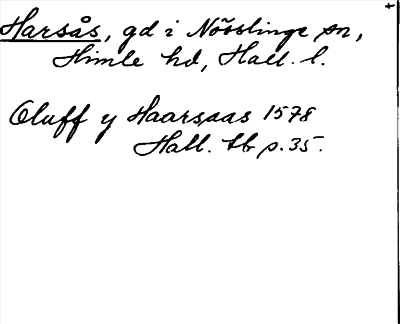 Harsås, gd i Nösslinge sn,
Himle hd, Hall. l.
Oluff y Haarsaas 1578
Hall. tb p. 35.